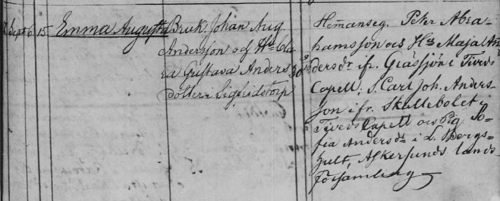 Sept 6 15 Emma Augusta
Bruk. Johan Aug.
Andersson och Hu Cla-
ra Gustava Anders-
dotter i
30
Hemanseg. Pehr Abra-
hamsson och Hu Maja An-
dersdr ifr. Gråssjön i Tiveds
Capell; S. Carl Joh. Anders-
son ifr. Skallebolet
i Tiveds Capell och Pig. So-
fia Andersdr i L. Bergs-
hult, Askersunds lands
församling